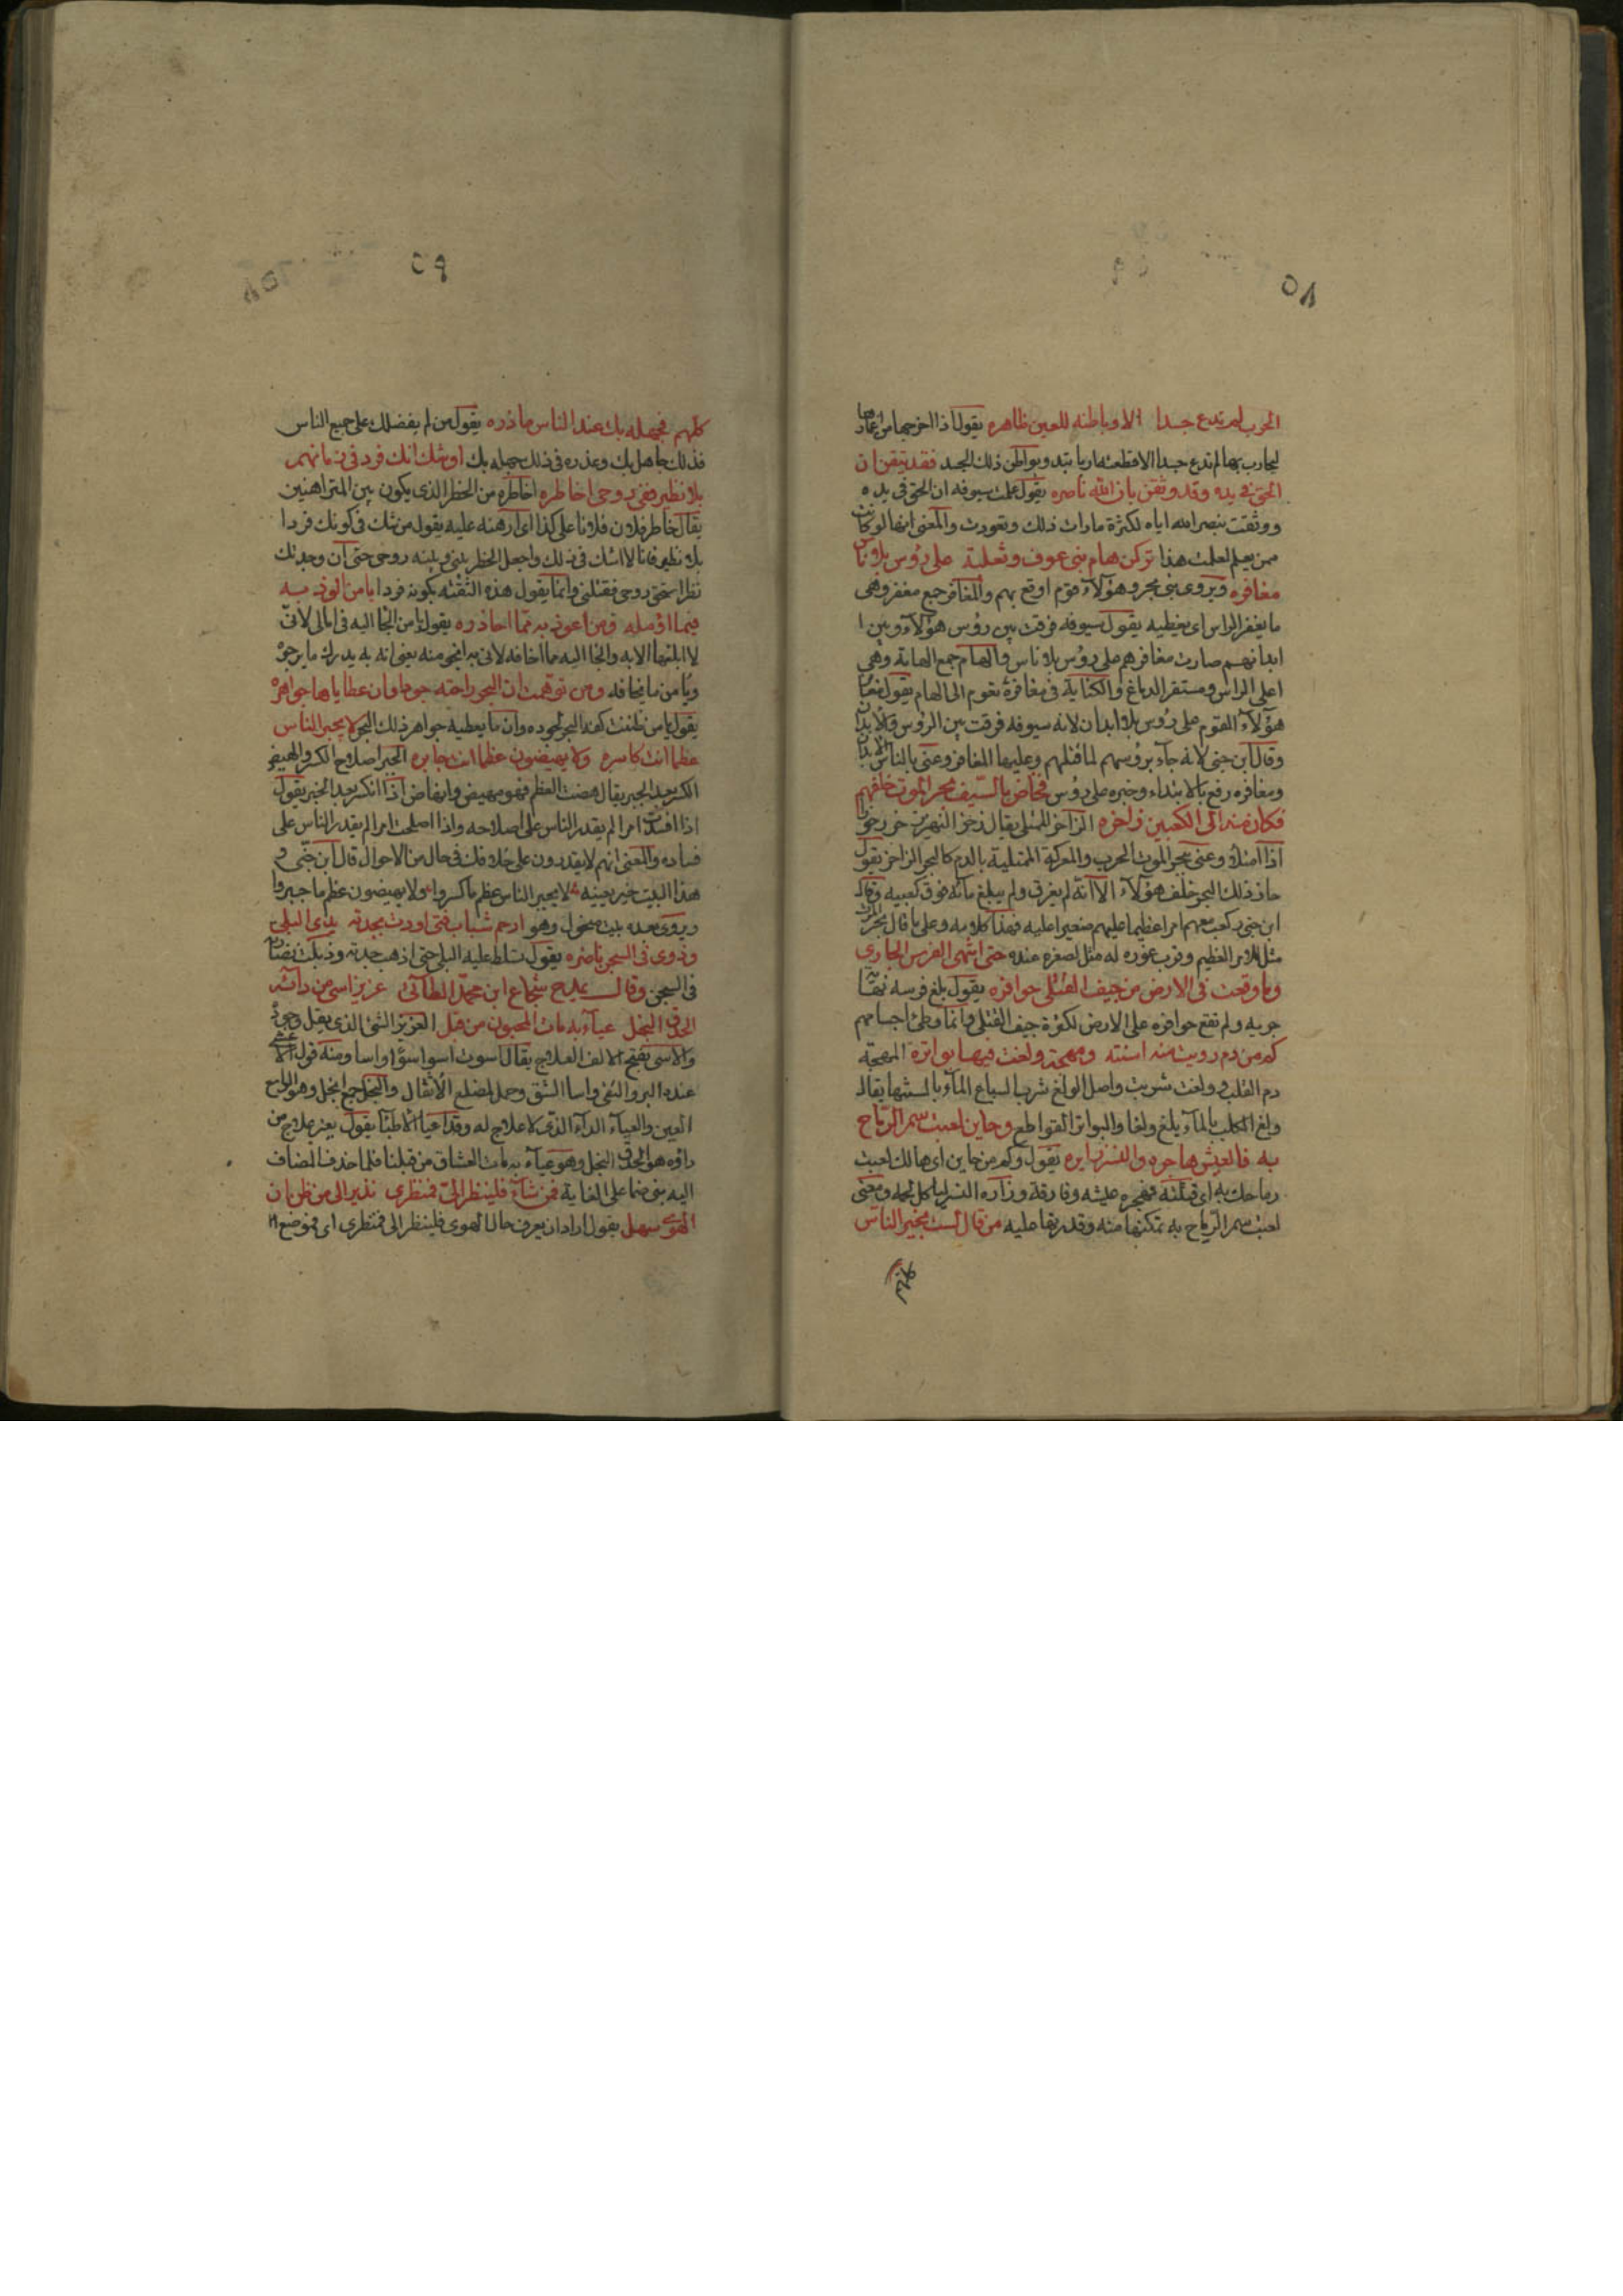 ٥٨
الحرب لم تدع جسدا الا وباطنه للعين ظاهره يقول اذا اخرجها من اغمادها
ليحارب بها لم تدع جسدا الا قطعته اربا تبدو بواطن ذلك الجسد فقد تيقن ان
الحق فى يده وقد وثقن بان الله ناصره يقول علمت سيوفه ان الحق فى يده
ووثقت بنصر الله اياه لكثرة ما رات ذلك وتعودت والمعنى انها لو كانت
ممن يعلم لعلمت هذا تركن هام بنى عوف وثعلبة على رؤس بلا ناس
مغافره ويروى بنى بحر وهؤلآء قوم اوقع بهم والمغافر جمع مغفر وهى
ما يغفر الراس اى يغطيه يقول سيوفه فرقت بين رؤس هؤلآء وبين ا
ابدانهم صارت مغافرهم على رؤس بلا ناس والهام جمع الهامة وهى
اعلى الراس ومستقر الدماغ والكناية فى مغافرة تعود الى الهام يقول مغافر
هؤلآء القوم على رؤس بلا ابدان لانه سيوفه فرقت بين الرؤس والابدان
وقال ابن جنى لانه جآء برؤسهم لما قتلهم وعليها المغافر وعنى بالناس الابدان
ومغافره رفع بالابتداء وخبره على رؤس فخاض بالسيف بحر الموت خلفهم
فكان منه الى الكعبين زاخره الزاخر الممتلى يقال زخر النهر يزخر زخورا
اذا امتلأ وعنى ببحر الموت الحرب والمعركة الممتلية بالدم كالبحر الزاخر يقول
خاض ذلك البحر خلف هؤلآء الا انه لم يغرق ولم يبلغ مآئه فوق كعبيه وقال
ابن جنى ركب معهم امرا عظيما عليهم صغيرا عليه فهذا كلامه وعلى ما قال بحر الموت
مثل للامر العظيم وقرب غوره له مثل لصغره عنده حتى انتهى الفرس الجارى
وما وقعت فى الارض من جيف القتلى حوافره يقول بلغ فرسه نهاية
جريه ولم تقع حوافره على الارض لكثرة جيف القتلى وانما وطئ اجسامهم
كم من دم رويت منه اسنته ومهجة ولغت فيها بواتره المهجة
دم القلب وولغت شربت واصل الولغ شرب السباع المآء بالسنتها يقال
ولغ الكلب بالمآء يلغ ولغا والبواتر القواطع وحاين لعبت سمر الرماح
به فالعيش هاجره والنسر زايره يقول وكم من حاين اى هالك لعبت
رماحك به اى قتلته فهجره عيشه وفارقه وزاره النسر لياكل لحمه ومعنى
لعبت سمر الرماح به تمكنها منه وقدرتها عليه من قال لست بخير الناس
٥٩
كلهم فجهله بك عند الناس عاذره يقول من لم يفضلك على جميع الناس
فذلك جاهل بك وعذره فى ذلك جهله بك او شك انك فرد فى زمانهم
بلا نظير ففى روحى اخاطره اخاطره من الخطر الذى يكون بين المتراهنين
يقال خاطر فلان فلانا على كذا اى ارهنه عليه يقول من شك فى كونك فردا
بلا نظير فانا لا اشك فى ذلك واجعل الخطر بينى وبينه روحى حتى ان وجد لك
نظرا استحق روحى فقتلنى وانما يقول هذه الثقته بكونه فردا يا من الوذ به
فيما اؤمله ومن اعوذ به مما احاذره يقول يا من الجا اليه فى امالى لانى
لا ابلغها الا به والجا اليه مما اخافه لانى به انجى منه يعنى انه به يدرك ما يرجو
ويأمن ما يخافه ومن توهمت ان البحر راحته جودا وان عطاياها جواهره
يقول يا من ظننت كفه البحر لجوده وان ما يعطيه جواهر ذلك البحر لا يجبر الناس
عظما انت كاسره ولا يهيضون عظما انت جابره الجبر اصلاح الكسر والهيض
الكسر بعد الجبر يقال هضت العظم فهو مهيض وانهاض اذا انكسر بعد الجبر يقول
اذا افسدت امرا لم يقدر الناس على اصلاحه واذا اصلحت امرا لم يقدر الناس على
فساده والمعنى انهم لا يقدرون على خلافك فى حال من الاحوال قال ابن جنى و
هذا البيت خير بعينه لا يجبر الناس عظم ما كسروا ولا يهيضون عظم ما جبروا
ويروى بعده بيت منحول وهو ارحم شباب فتى اودت بجدته يد البلى
وذوى فى السجن ناضره يقول تسلط عليه البلى حتى اذهب جدته وذبلت نضارته
فى السجن وقال يمدح شجاع ابن محمد الطائى عزيز اسى من دآئه
الحدق النجل عيآء به مات المحبون من قبل العزيز الشئ الذى يقل وجوده
والاسى بفتح الالف العلاج يقال اسوت اسوا اسوًا واسا ومنه قول الاعشى
عنده البر والتقى واسا الشق وحمل لمضلع الاثقال والنجل جمع انجل وهو الواسع
العين والعيآء الدآء الذى لا علاج له وقد اعيا الاطبا يقول يعز علاج من
داؤه هو الحدق النجل وهو عيآء به مات العشاق من قبلنا فلما حذف المضاف
اليه بنى ضما على الغاية فمن شآء فلينظر الى فمنظرى نذير الى من ظن ان
الهوى سهل يقول اراد ان يعرف حال الهوى فلينظر الى فمنظرى اى فموضع ا